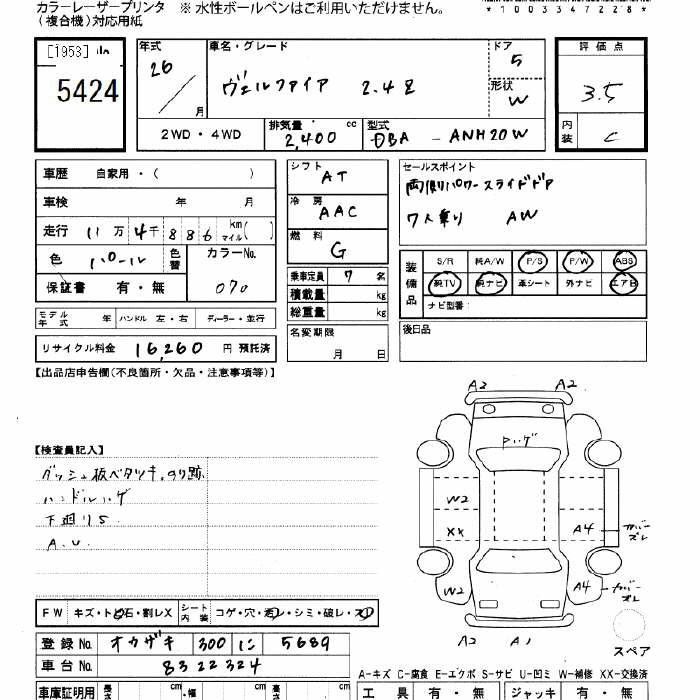 カラーレーザープリンタ ※ 水性ボールペンはご利用いただけません。
(複合機)対応用紙
*1003347228*
[1953]
5424
年式 26 月
車名・グレード ヴェルファイア 2.4Z
ドア 5
形状 W
評価点 3.5
内装 C
2WD・4WD
排気量 2,400 cc
型式 DBA - ANH20W
車歴 自家用・( )
車検 年 月
走行 11万 4千 886 km マイル( )
色 パール 色替
カラーNo. 070
保証書 有・無
シフト AT
冷房 AAC
燃料 G
乗車定員 7 名
積載量 kg
総重量 kg
セールスポイント
両側パワースライドドア
7人乗り AW
装備品
S/R 純A/W P/S P/W ABS
純TV 純ナビ 革シート 外ナビ エアB
ナビ型番:
モデル年式 年 ハンドル 左・右 ディーラー・並行
名変期限 月 日
後日品
リサイクル料金 16,260 円 預託済
【出品店申告欄(不良箇所・欠品・注意事項等)】
A2 A2
Pハゲ
【検査員記入】
ダッシュ板ベタツキ.のり跡
ハンドルハゲ
下廻りS
A.U.
W2
XX A4 カバーズレ
W2 A4 カバーズレ
A2 A1
スペア
FW キズ・トビ石・割レX シート内装 コゲ・穴・汚レ・シミ・破レ・スレ
登録No. オカザキ 300 に 5689
車台No. 8322324
A-キズ C-腐食 E-エクボ S-サビ U-凹ミ W-補修 XX-交換済
車庫証明用 長さ cm ・幅 cm cm
工具 有・無 ジャッキ 有・無